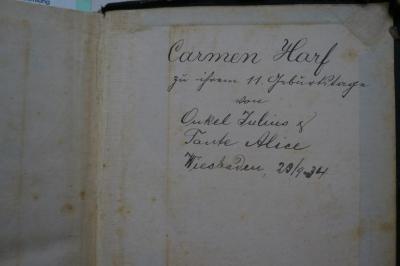 Carmen Harf
zu ihrem 11. Geburtstage
von
Onkel Julius &
Tante Alice
Wiesbaden, 23/9.34